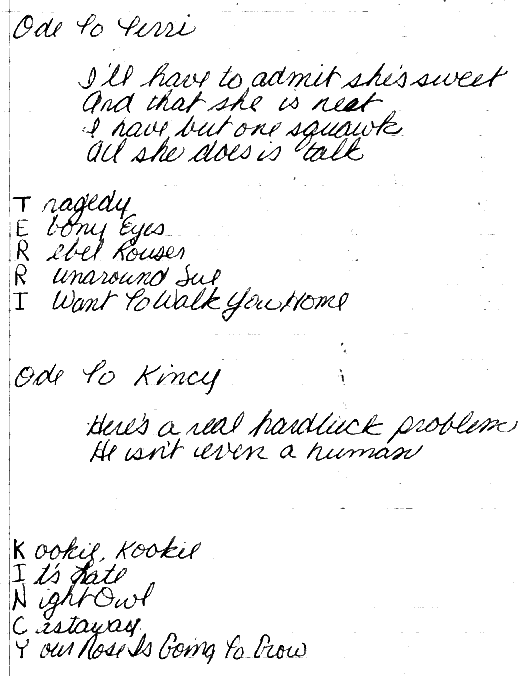 Ode To Terri
I'll have to admit she's sweet
And that she is neat
I have but one squawk
All she does is talk
T ragedy
E bony Eyes
R ebel Rouser
R unaround Sue
I Want To Walk You Home
Ode To Kincy
Here's a real hardluck problem
He isn't even a human
K ookie, Kookie
I t's Late
N ight Owl
C astaway
Y our Nose Is Going To Grow